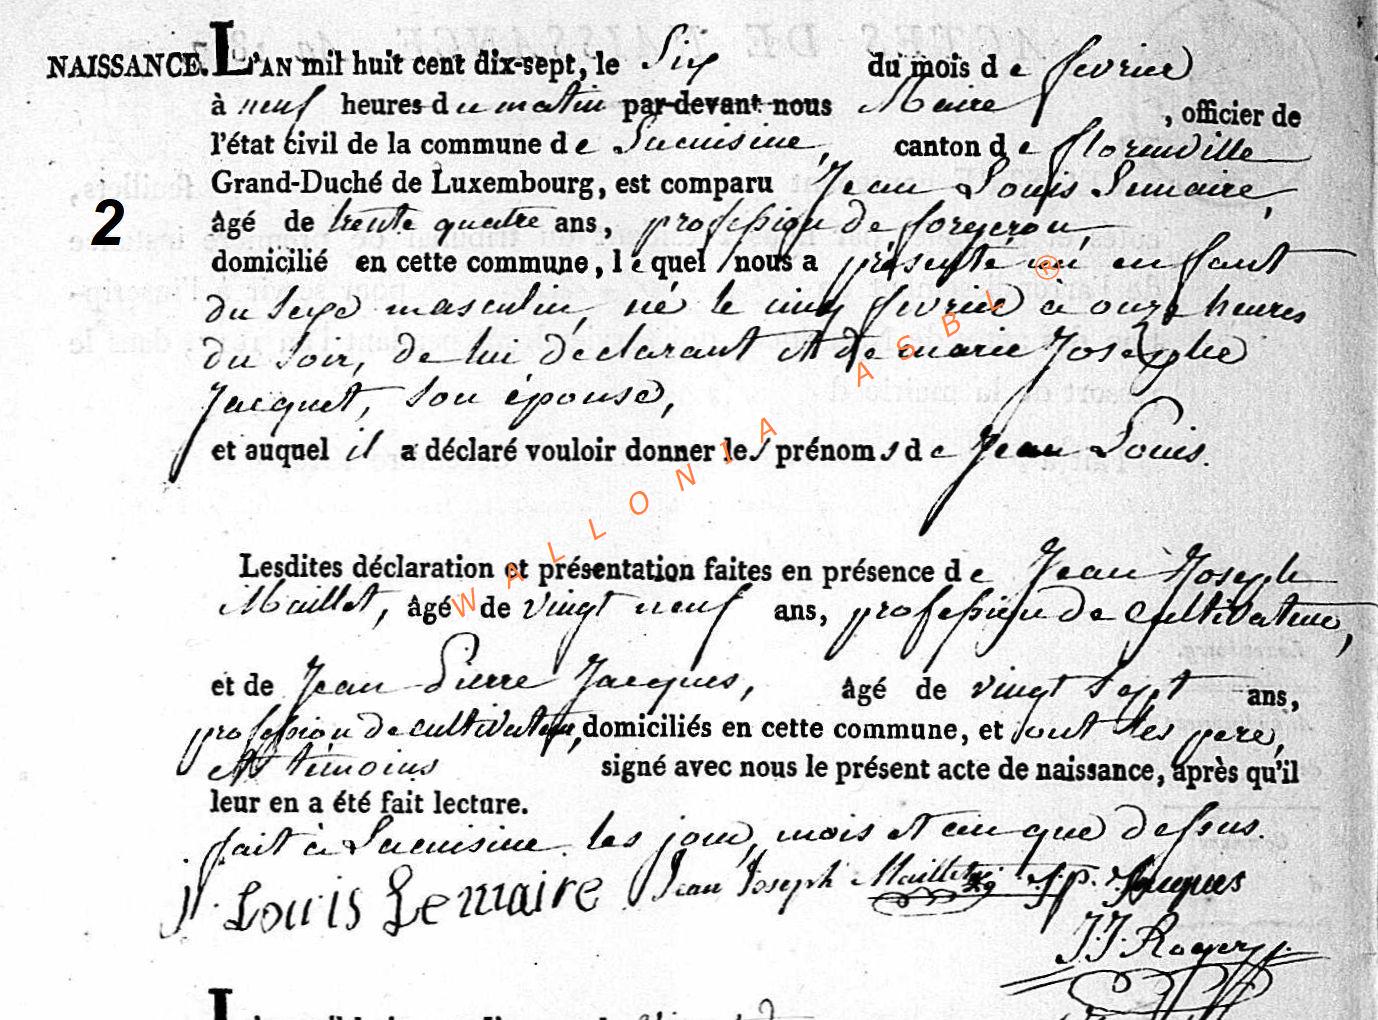 NAISSANCE. L'AN mil huit cent dix-sept, le Six du mois de fevrier
à neuf heures du matin par-devant nous Maire, officier de
l'état civil de la commune de Lacuisine, canton de florenville
Grand-Duché de Luxembourg, est comparu Jean Louis Lemaire,
2
âgé de trente quatre ans, profession de forgeron,
domicilié en cette commune, lequel nous a présenté un enfant
du Sexe masculin, né le cinq fevrier à onze heures
du Soir, de lui declarant et de marie Josephe
Jacquet, Son épouse,
et auquel il a déclaré vouloir donner les prénoms de Jean Louis.
WALLONIA ASBL ®
Lesdites déclaration et présentation faites en présence de Jean Joseph
Maillet, âgé de vingt neuf ans, profession de cultivateur,
et de Jean Pierre Jacques, âgé de vingt Sept ans,
profession de cultivateur, domiciliés en cette commune, et sont les pere,
et témoins signé avec nous le présent acte de naissance, après qu'il
leur en a été fait lecture.
fait à Lacuisine les jour, mois et an que dessus.
J. Louis Lemaire Jean Joseph Maillet J. p. Jacques
J. J. Roger